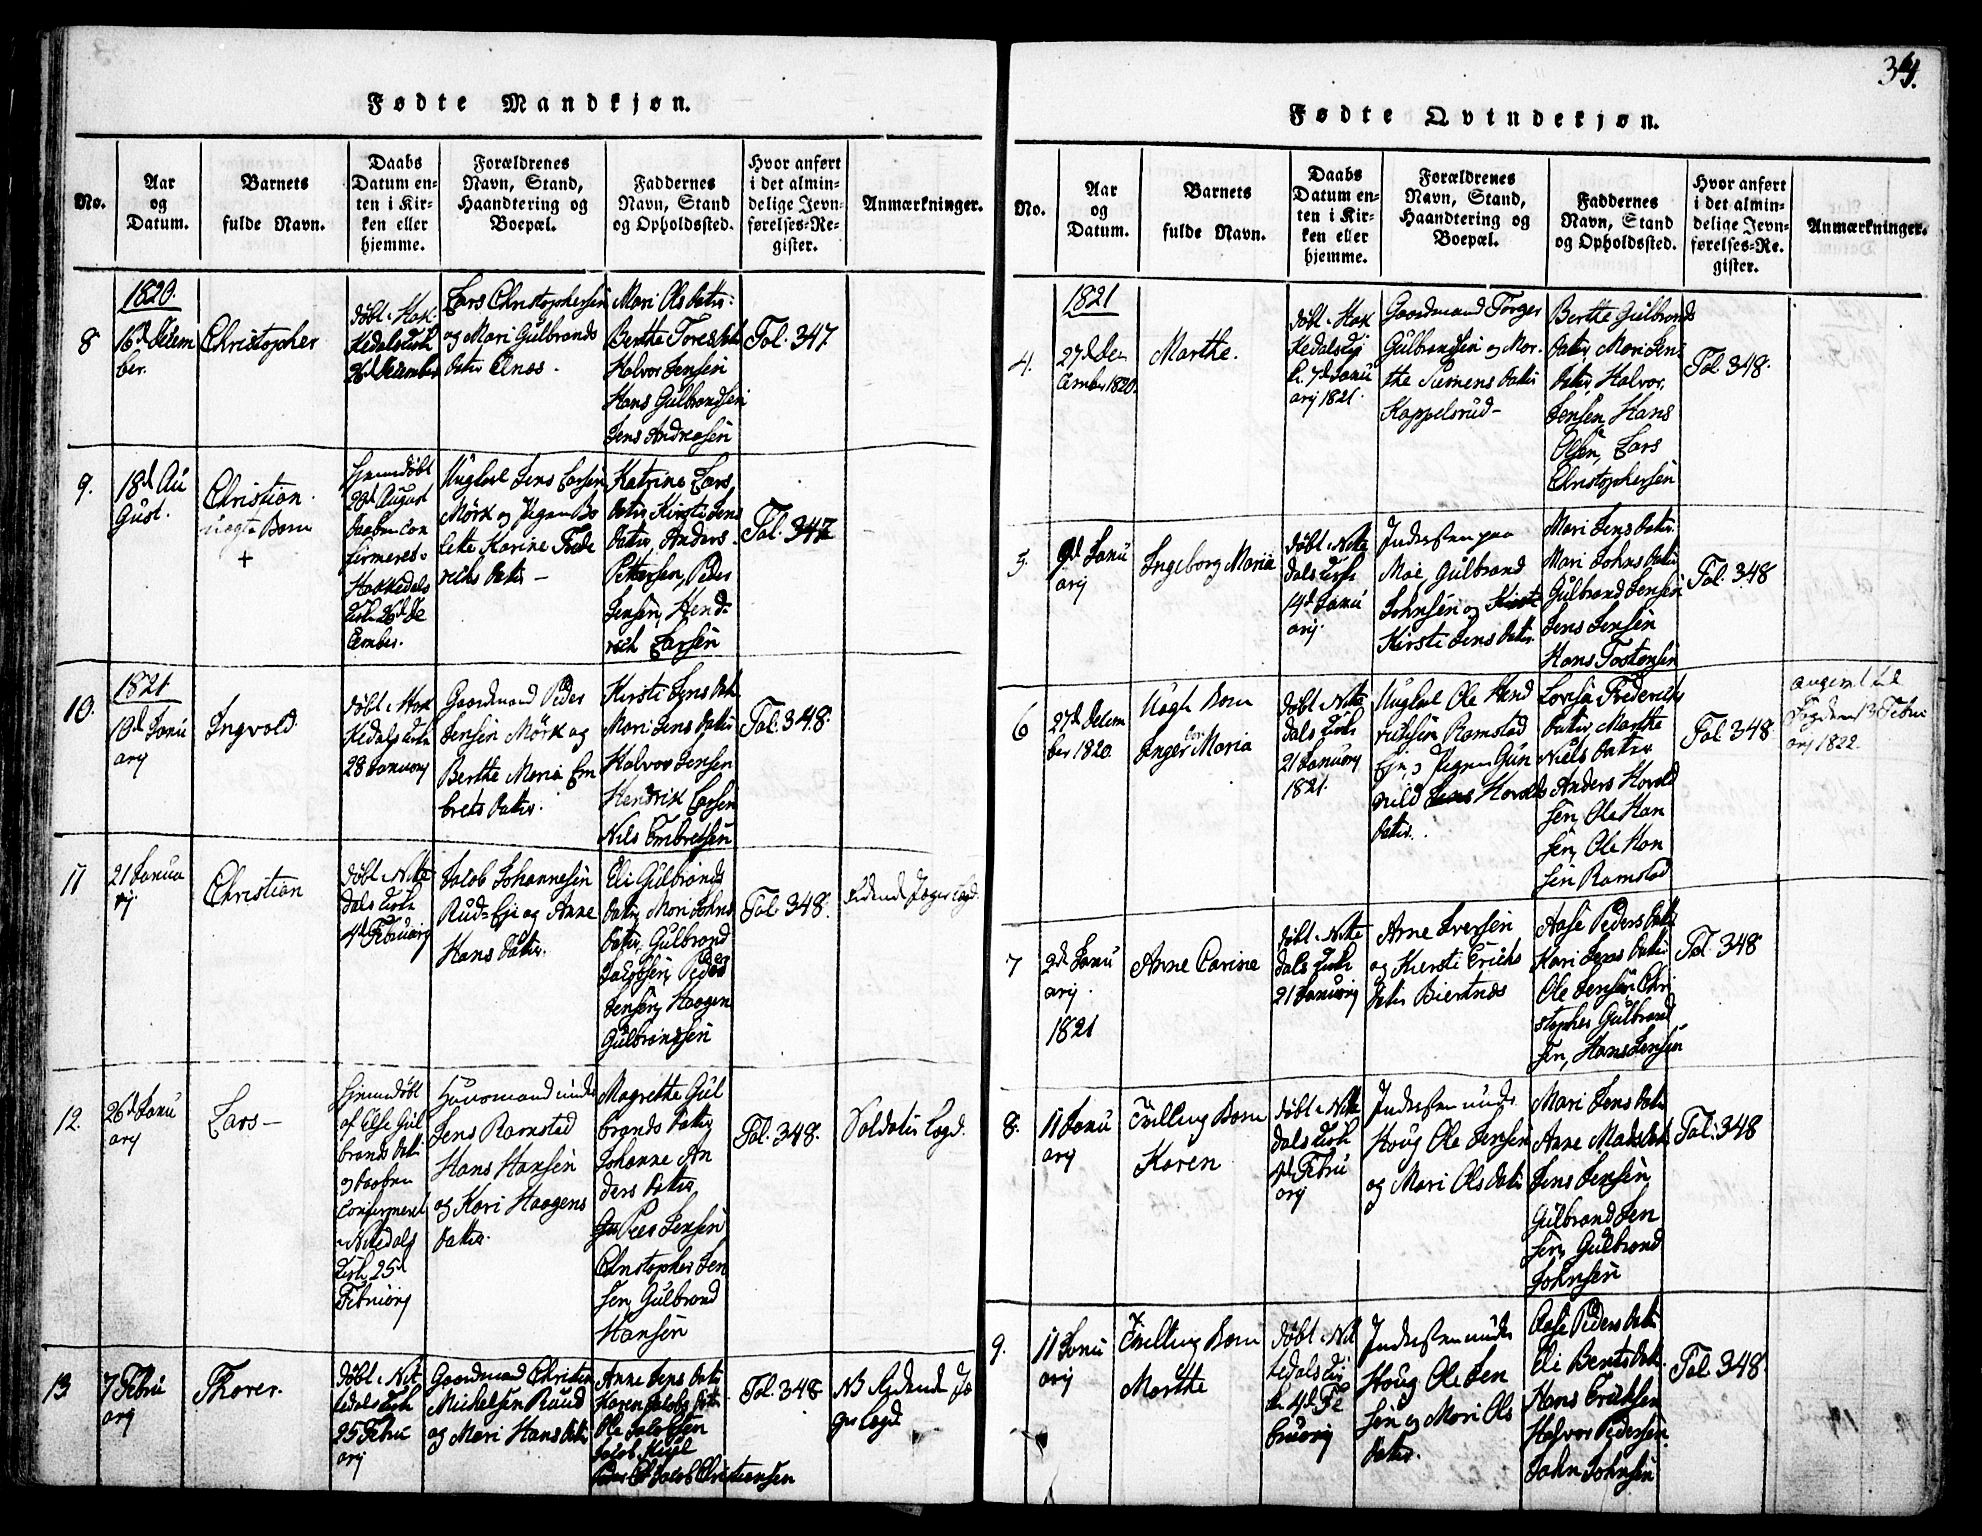 34.
Fødte Mandkjøn.
No.
Aar
og
Datum.
Barnets
fulde Navn.
Daabs
Datum en-
ten i Kir-
ken eller
hjemme.
Forældrenes
Navn, Stand,
Haandtering og
Boepæl.
Faddernes
Navn, Stand
og Opholdssted.
Hvor anført
i det almin-
delige Jevn-
førelses-Re-
gister.
Anmærkninger.
8
1820.
16d Decem
ber.
Christopher
døbt i Hak
Kedals Kirk
26d December
Lars Christophersen
og Mari Gulbrands
datter Elnes.
Mari Ols datter
Berthe Tores dat
Halvor Jensen
Hans Gulbrandsen
Jens Andreasen
Fol. 347
9.
18d Au
Gust.
Christian
uægte Barn
+
hjemmedøbt
August
Daaben con
firmeret
Hakkedals
Kirk 26d De
Cember.
Ungkarl Jens Larsen
Mørk og Pigen Bo
lette Karine Frede
richs datter –
Katrine Lars
datter Kirsti Jens
datter, Anders
Pettersen, Peder
Jensen, Hend
rich Larsen
Fol. 347
10.
1821
19d Janu
arij
Ingvold
døbt i Hak
Kedals Kirk
28 Januarij
Gaardmand Peder
Jensen Mørk og
Berthe Maria Em
brets datter.
Kirsti Jens dat
Mari Jens datter
Halvor Jensen
Hendrik Larsen
Nils Embretsen
Fol. 348.
11
21 Janua
rij.
Christian
døbt i Nitte
dals Kirk
4d Februarij
Jacob Johannesen
Rud-Eje og Anne
Hans datter.
Eli Gulbrands
datter, Mari Johns
datter, Gulbrand
Jacobsen, Peder
Jensen, Haagen
Gulbrandsen
Fol. 348.
12.
26d Janu
arij
Lars –
hjemmedøbt
af Else Gul
brands dat
og Daaben
Confirmeret
i Nitedals
Kirk 25d
Februarij
Huusmand under
Jens Ramstad
Hans Hansen
og Kari Haagens
datter.
Magrethe Gul
brands datter
Johanne An
ders datter
Peer Jensen
Christopher Jen
sen, Gulbrand
Hansen
Fol. 348.
Soldater Lægd.
13
7 Febru
arij
Thorer.
døbt i Nit
tedals Kirk
25 Febru
arij
Gaardmand Christian
Michelsen Ruud
og Mari Hans datt
Anne Jens datt
Karen Jacobs dat
Ole Jacobsen
Jacob
Jacob Christiansen
Fol. 348
NB
Fødte Qvindekjøn.
No.
Aar
og
Datum.
Barnets
fulde Navn.
Daabs
Datum en-
ten i Kir-
ken eller
hjemme.
Forældrenes
Navn, Stand,
Haandtering og
Boepæl.
Faddernes
Navn, Stand
og Opholdssted.
Hvor anført
i det almin-
delige Jevn-
førelses-Re-
gister.
Anmærkninger.
4.
1821
27d De
cember 1820.
Marthe.
døbt i Hak
Kedals Kir
k. 7d Janu
arij 1821.
Gaardmand Torger
Gulbrandsen og Mar
the Siemens datter
Kappelsrud –
Berthe Gulbrands
datter, Mari Jens
datter, Halvor
Jensen, Hans
Olsen, Lars
Christophersen
Fol. 348.
5.
9d Janu
arij
Ingeborg Maria
døbt i Nitte
dals Kirk
14d Janu
arij.
Inderst paa
Moe, Gulbrand
Johnsen og
Kirsti Jens datter
Mari Jens datter
Mari Johns datter
Gulbrand Jensen
Jens Jensen
Hans Tostensen
Fol. 348
6
27d Decem
ber 1820.
Uægte Barn
Inger Maria
døbt i Nitte
dals Kirk
21 Januarij
1821.
Ungkarl Ole Hend
richsen Ramstad
Eje, og Pigen Gun
nild Horvalds
datter.
Lovisa Frederichs
datter, Marthe
Niels datter
Anders Horvald
sen, Ole Han
sen, Ole Han
sen Ramstad
Fol. 348
angivet til
Fogden 13 Febru
arij 1822.
7
2d Janu
arij.
1821
Anne Carine
døbt i Nitte
dals Kirk
21 Januarij
Arne Iversen
og Kiersti Erichs
datter Biertnæs
Aase Peders datt
Kari Jens datter
Ole Jensen, Chri
stopher Gulbrand
sen, Hans Jensen
Fol. 348
8.
11 Janu
arij
Tvilling Barn
Karen
døbt i Nitte
dals Kirk
4d Febru
arij
Inderst under
Houg Ole Jensen
og Mari Ols datter
Mari Jens datt
Anne Mads dat
Jens Jensen
Gulbrand Jen
sen, Gulbrand
Johnsen
Fol. 348
9.
11 Janu
arij
Tvilling Barn
Marthe
døbt i Nit
tedals Kir
k. 4d Fe
bruarij
Inderst under
Houg Ole Jen
sen og Mari Ols
datter.
Aase Peders datt
Eli Bents dat
Hans Eriksen
Halvor Pedersen
John Johnsen
Fol. 348